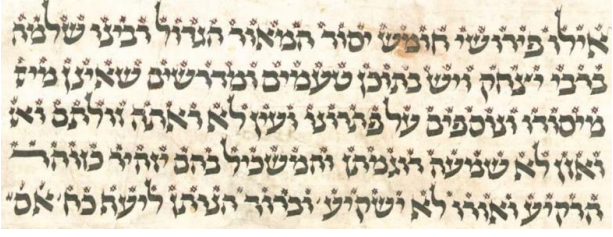 אילו פירושי חומש יסוד המאור הגדול רבינו שלמה
ברבי יצחק ויש בתוכן טעמים ומדרשים שאינן מיוז
מיסודו ונוספים על פתרוני ועין לא ראתה זולתם ואו
ואוזן לא שמעה דוגמתן והמשכיל בהם יזהיר כזוהר
הרקיע ואורו לא ישקיע וברוך הנותן ליעף כח אס